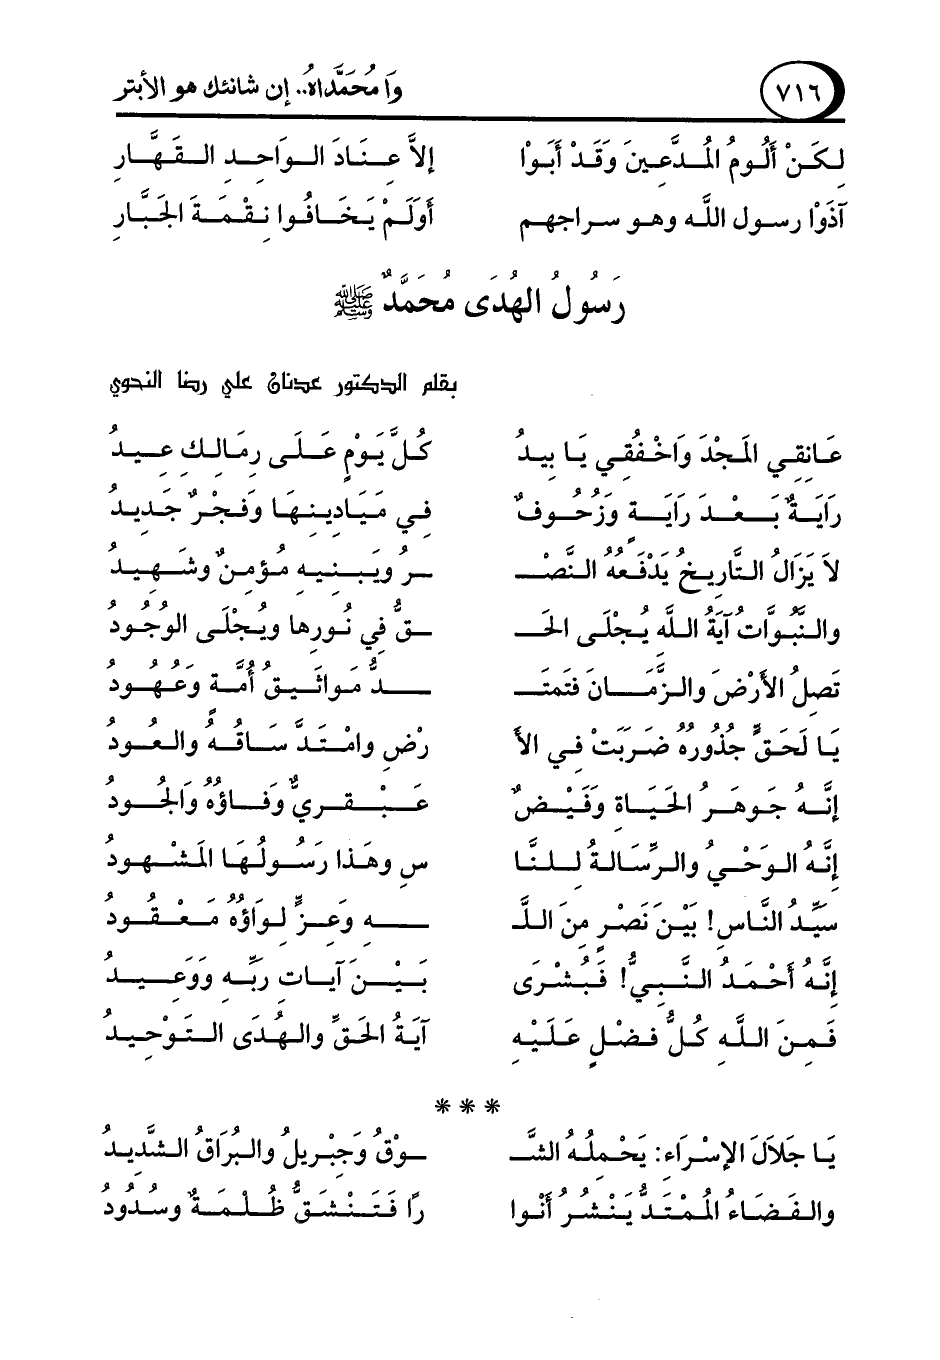 ٧١٦ وَا مُحَمَّدَاهُ.. إن شانئك هو الأبتر
لكِنْ أَلُومُ المُدَّعِينَ وَقَدْ أَبَوْا إلاَّ عِنَادَ الوَاحِدِ القَهَّارِ
آذَوْا رسول الله وهو سراجهم أَوَلَمْ يَخَافُوا نِقْمَةَ الجَبَّارِ
رَسُولُ الهُدَى مُحَمَّدٌ ﷺ
بقلم الدكتور عدنان علي رضا النحوي
عَانِقِي المَجْدَ وَاخْفُقِي يَا بِيدُ كُلَّ يَوْمٍ عَلَى رِمَالِكِ عِيدُ
رَايَةٌ بَعْدَ رَايَةٍ وَزُحُوفٌ فِي مَيَادِينِهَا وَفَجْرٌ جَدِيدُ
لاَ يَزَالُ التَّارِيخُ يَدْفَعُهُ النَّصْـ ـرُ وَيَبْنِيهِ مُؤْمِنٌ وشَهِيدُ
والنُّبُوَّاتُ آيَةُ اللَّهِ يُجْلَى الحَـ ـقُّ فِي نُورِها ويُجْلَى الوُجُودُ
تَصِلُ الأَرْضَ والزَّمَانَ فَتَمْتَـ ـدُّ مواثيقُ أُمَّةٍ وَعُهُودُ
يَا لَحَقٍّ جُذُورُهُ ضَرَبَتْ فِي الأَ رْضِ وامْتَدَّ سَاقُهُ والعُودُ
إنَّهُ جَوهَرُ الحَيَاةِ وَفَيْضٌ عَبْقَرِيٌّ وَفَاؤُهُ وَالجُودُ
إنَّهُ الوَحْيُ والرِّسَالةُ لِلنَّا سِ وهَذا رَسُولُهَا المَشْهُودُ
سَيِّدُ النَّاسِ! بَيْنَ نَصْرٍ مِنَ اللَّـ ـهِ وَعِزٍّ لِوَاؤُهُ مَعْقُودُ
إنَّهُ أَحْمَدُ النَّبِيُّ! فَبُشْرَى بَيْنَ آيَاتِ رَبِّهِ وَوَعِيدُ
فَمِنَ اللَّهِ كُلُّ فَضْلٍ عَلَيْهِ آيَةُ الحَقِّ والهُدَى التَوْحِيدُ
* * *
يَا جَلاَلَ الإسْرَاءِ: يَحْمِلُهُ الشَّـ ـوْقُ وَجِبْرِيلُ والبُرَاقُ الشَّدِيدُ
والفَضَاءُ المُمْتَدُّ يَنْشُرُ أَنْوا رًا فَتَنْشَقُّ ظُلْمَةٌ وسُدُودُ